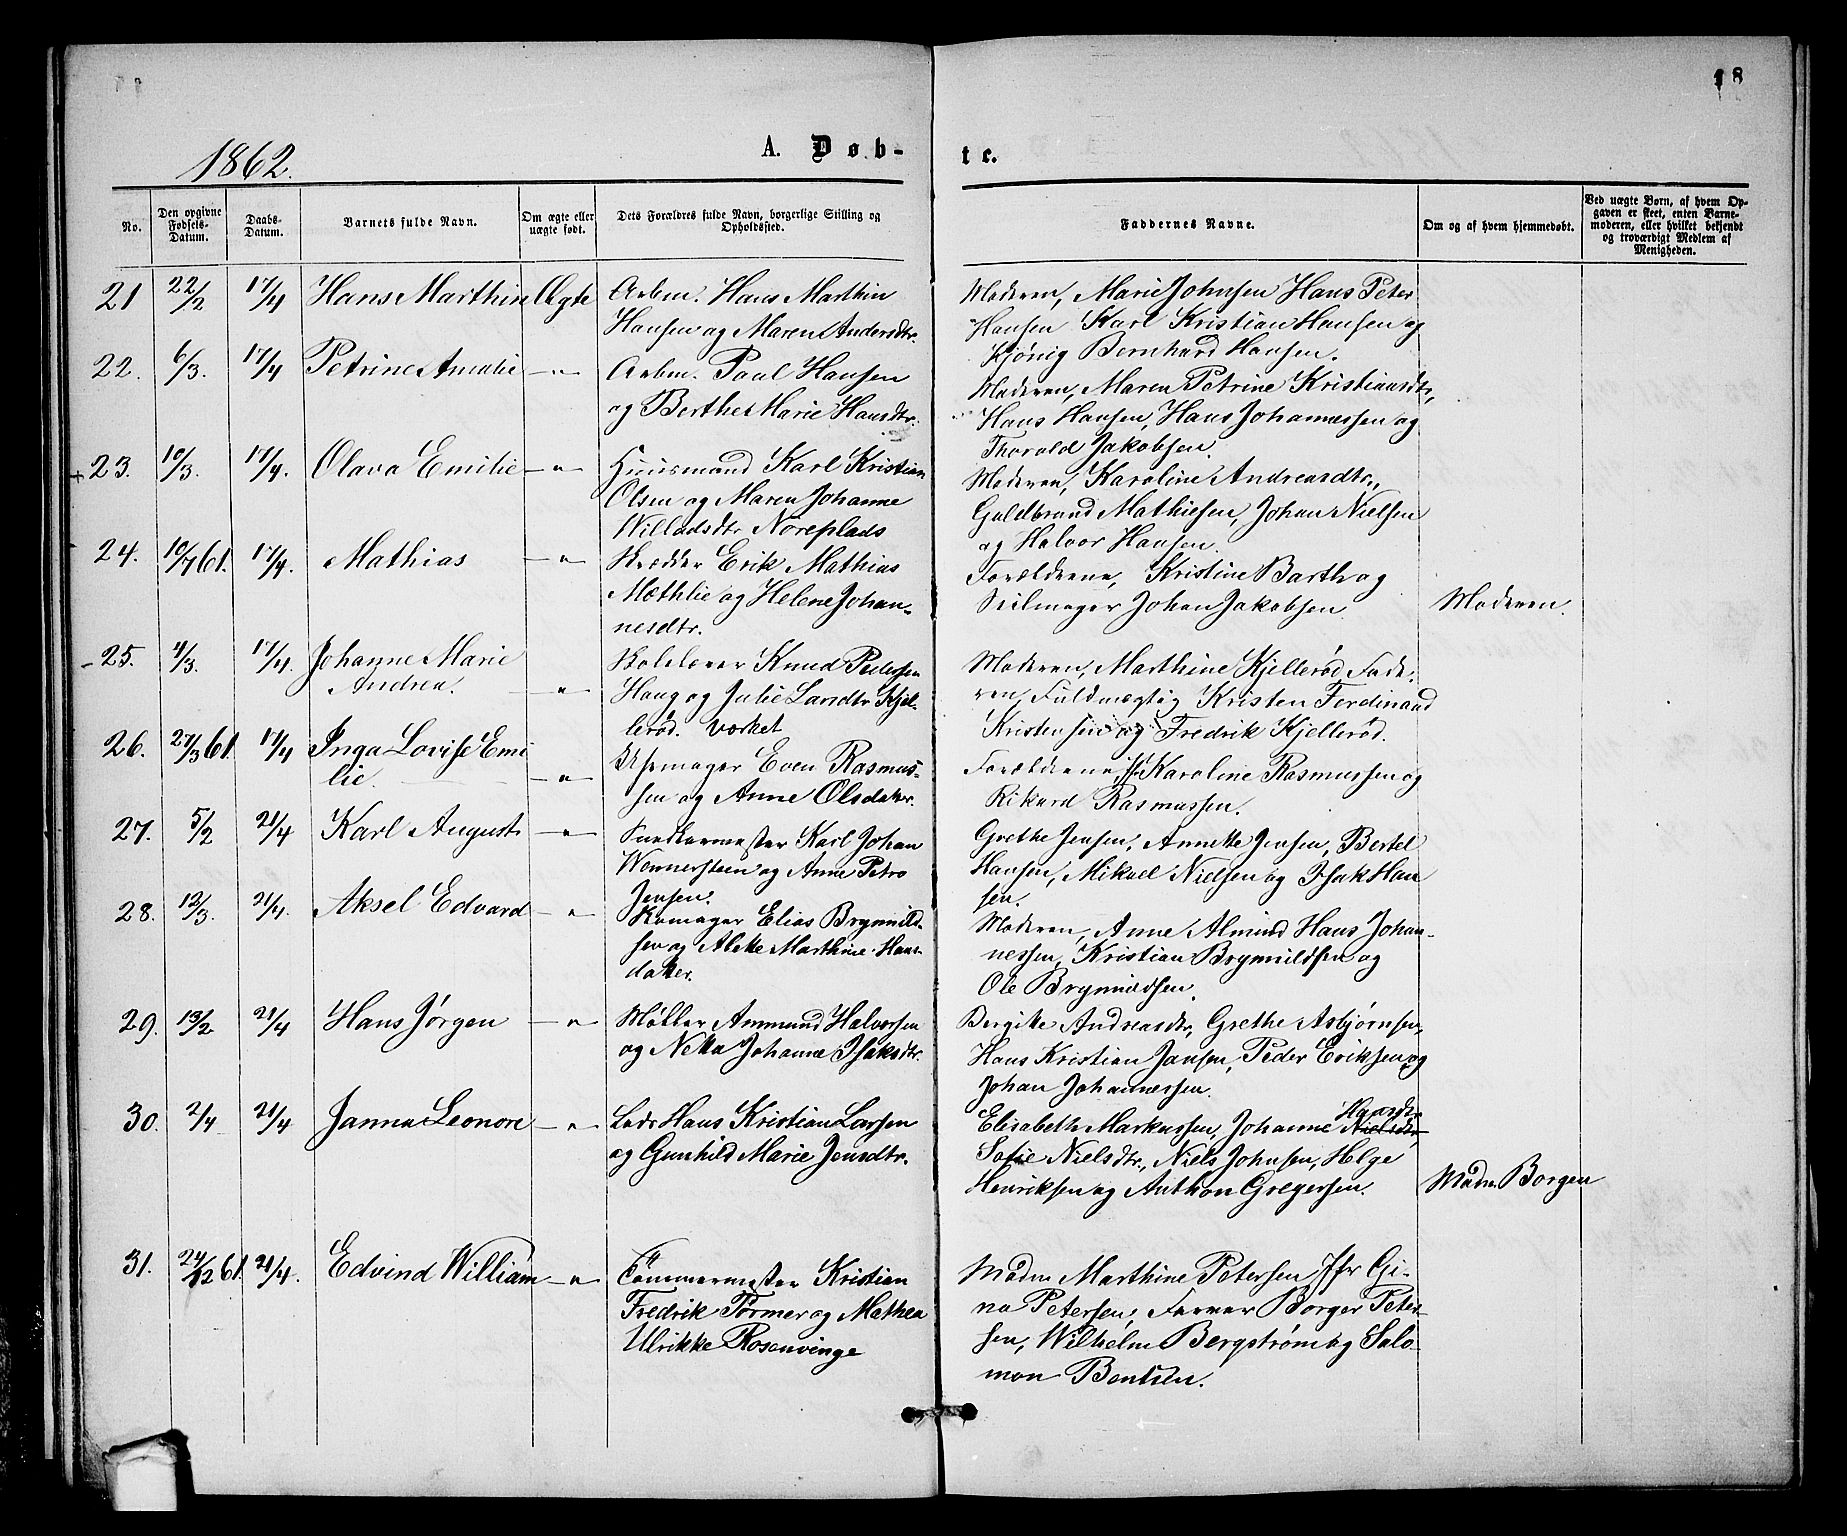 18
1862.
A. Døb-
te.
No.
Den opgivne Fødsels-Datum.
Daabs-Datum.
Barnets fulde Navn.
Om ægte eller uægte født.
Dets Forældres fulde Navn, borgerlige Stilling og Opholdssted.
Faddernes Navne.
Om og af hvem hjemmedøbt.
Ved uægte Børn, af hvem Opgaven er skeet, enten Barnemoderen, eller hvilket bekjendt og troværdigt Medlem af Menigheden.
21 22/2 17/4 Hans Marthin Ægte Arbm. Hans Marthin
Hansen og Maren Andersdtr.
Moderen, Marie Johnsen Hans Peter
Hansen Karl Kristian Hansen og
Kjönig Bernhard Hansen.
22. 6/3. 17/4 Petrine Amalie -"- Arbm. Paul Hansen
og Berthe Marie Hansdtr.
Moderen, Maren Petrine Kristiansdtr,
Hans Hansen, Hans Johannessen og
Thorvald Jakobsen.
23. 10/3. 17/4. Olava Emilie -"- Huusmand Karl Kristian
Olsen og Maren Johanne
Willadsdtr Noreplads
Moderen, Karoline Andreasdtr,
Guldbrand Mathiesen, Johan Nielsen
og Halvor Hansen.
24. 10/7 61. 17/4. Mathias -"- Skrædder Erik Mathias
Mæthlie og Helene Johan-
nesdtr.
Forældrene, Kristine Barth og
Seilmager Johan Jakobsen
Moderen.
25. 4/3. 17/4. Johanne Marie
Andrea. -"-
Skolelærer Knud Pedersen
Haug og Julie Larsdtr Kjel-
lerød. Værket
Moderen, Marthine Kjellerød Fade-
ren, Fuldmægtig Kristen Ferdinand
Kristensen og Fredrik Kjellerød.
26. 27/3 61. 17/4 Inga Lovise Emi
lie. -"-
Uhrmager Even Rasmus-
sen og Anne Olsdatter.
Forældrene, Karoline Rasmussen og
Rikard Rasmussen.
27. 5/2 21/4 Karl August -"- Snedkermester Karl Johan
Wennersteen og Anne Petro
Jensen.
Grethe Jensen, Annette Jensen, Bertel
Hansen, Mikael Nielsen og Isak Han
sen.
28. 12/3. 21/4. Aksel Edvard -"- Skomager Elias Brynnild-
sen og Alette Marthine Hans-
datter.
Moderen, Anne Almind Hans Johan-
nessen, Kristian Brynnildsen og
Ole Brynnildsen.
29. 13/2 21/4 Hans Jørgen -"- Møller Ammund Halvorsen
og Netta Johanne Isaksdtr.
Bergitte Andreasdtr, Grethe Asbjørnsen,
Hans Kristian Jansen, Peder Eriksen og
Johan Johannessen.
30. 2/4 21/4 Janna Leonore -"- Lods Hans Kristian Larsen
og Gunhild Marie Jensdtr.
Elisabeth Markussen, Johanne Nielsdtr Hansdtr
Sofie Nielsdtr, Niels Johnsen, Helge
Henriksen og Anthon Gregersen.
Madm. Borgen
31. 24/12 61. 21/4. Edvind William -"- Tømmermester Kristian
Fredrik Tørmer og Mathea
Ulrikke Rosenvinge
Madm Marthine Petersen Jfr Gi-
na Petersen, Farver Borger Peter-
sen, Wilhelm Bergstrøm og Salo-
mon Bentsen.